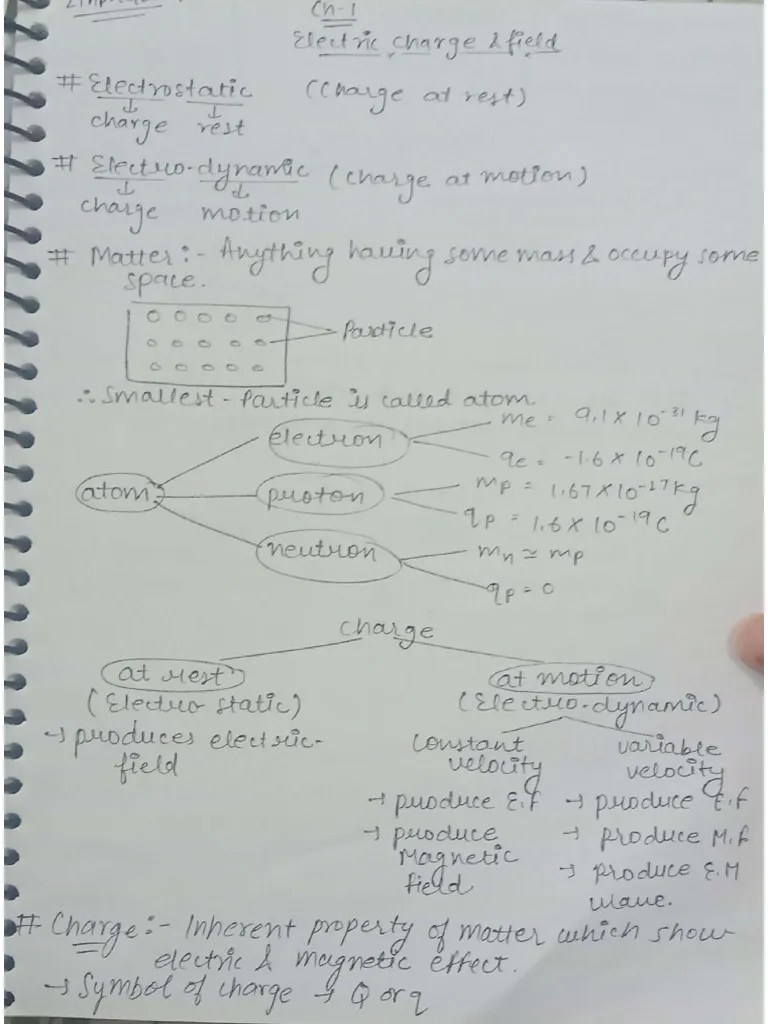 Ch-1
Electric charge & field
# Electrostatic (Charge at rest)
charge rest
# Electro-dynamic (Charge at motion)
charge motion
# Matter :- Anything having some mass & occupy some
space.
Particle
∴ Smallest - Particle is called atom
atom
electron
me = 9.1 × 10⁻³¹ kg
qe = -1.6 × 10⁻¹⁹C
proton
mp = 1.67 × 10⁻²⁷ kg
qp = 1.6 × 10⁻¹⁹ C
neutron
mn ≃ mp
qp = 0
charge
at rest
(Electro static)
→ produces electric-
field
at motion
(Electro-dynamic)
Constant
velocity
→ produce E.f
→ produce
Magnetic
field
variable
velocity
→ produce E.f
→ produce M.f
→ produce E.M
wave.
# Charge :- Inherent property of matter which show
electric & magnetic effect.
→ Symbol of charge → Q or q